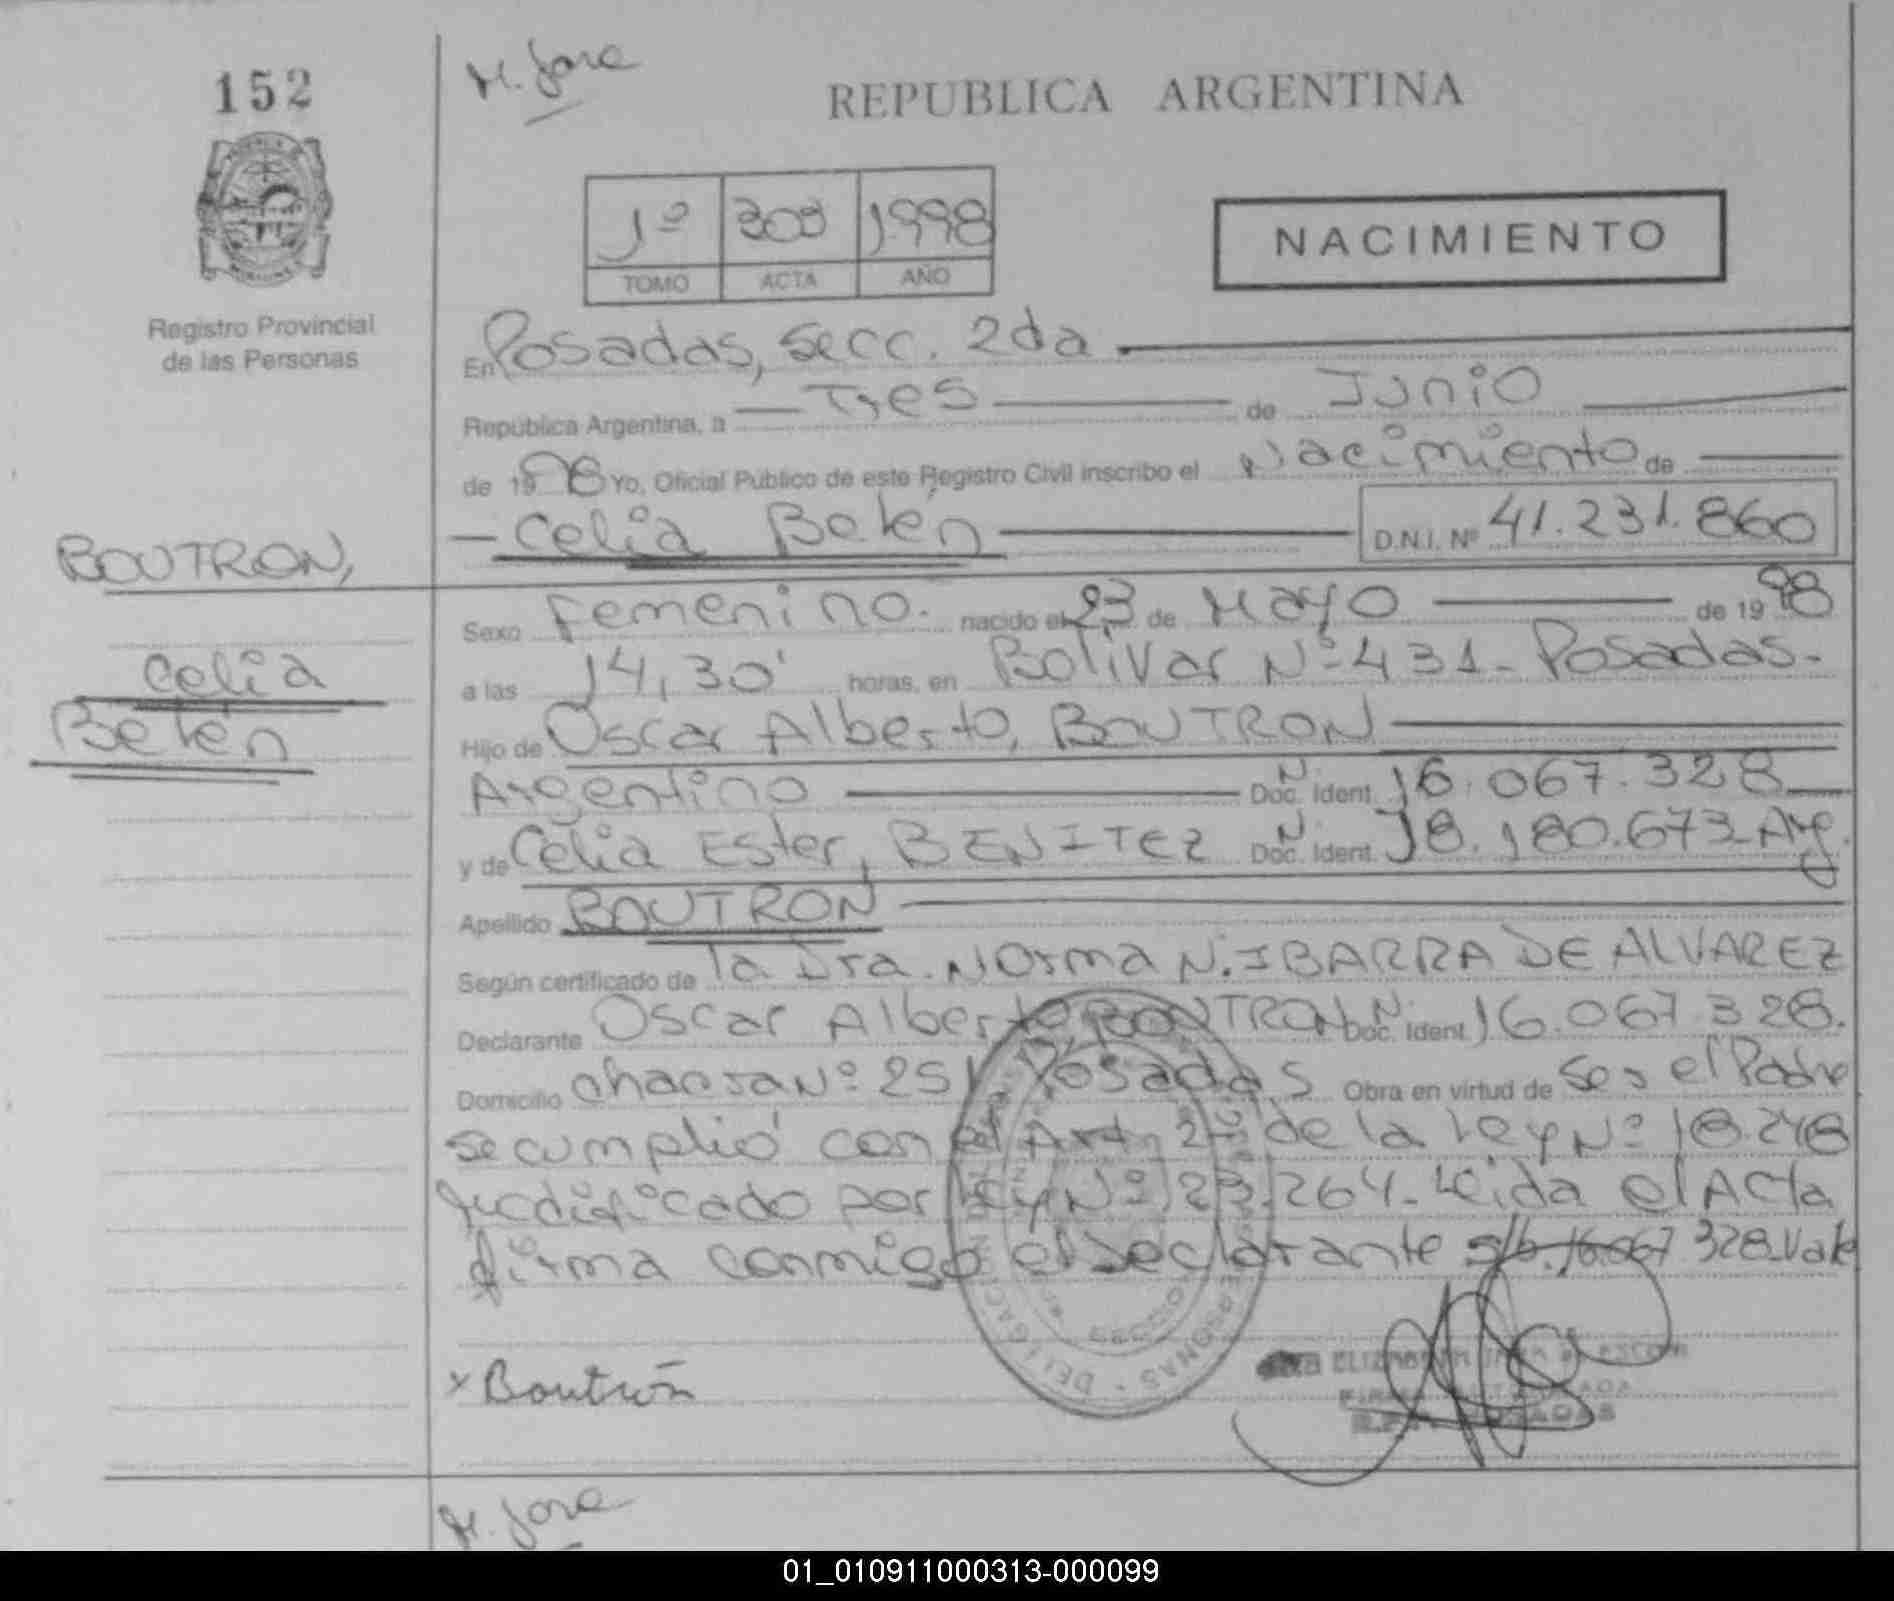 152
M. Jose
REPUBLICA ARGENTINA
Registro Provincial
de las Personas
1º 303 1998
TOMO ACTA AÑO
NACIMIENTO
En Posadas, Secc. 2da
República Argentina, a Tres de Junio
de 1998 Yo, Oficial Público de este Registro Civil inscribo el Nacimiento de
Celia Belén D.N.I. Nº 41.231.860
BOUTRON,
Celia
Belén
Sexo Femenino. nacido el 23 de Mayo de 1998
a las 14,30' horas, en Bolivar Nº 431 - Posadas -
Hijo de Oscar Alberto, BOUTRON
Argentino N. Doc. Ident. 16.067.328
y de Celia Ester, BENITEZ N. Doc. Ident. 18.180.673 - Arg.
Apellido BOUTRON
Según certificado de la Dra. Norma N. IBARRA DE ALVAREZ
Declarante Oscar Alberto, BOUTRON N. Doc. Ident. 16.067.328.
Domicilio Chacra Nº 251 Posadas Obra en virtud de Ser el Padre
se cumplió con el Art. 2º de la Ley Nº 18.248
modificado por Ley Nº 23.264 - Leida el Acta
firma conmigo el Declarante s/b. 16.067 328. Vale
x Boutrón
M. Jose
01_010911000313-000099